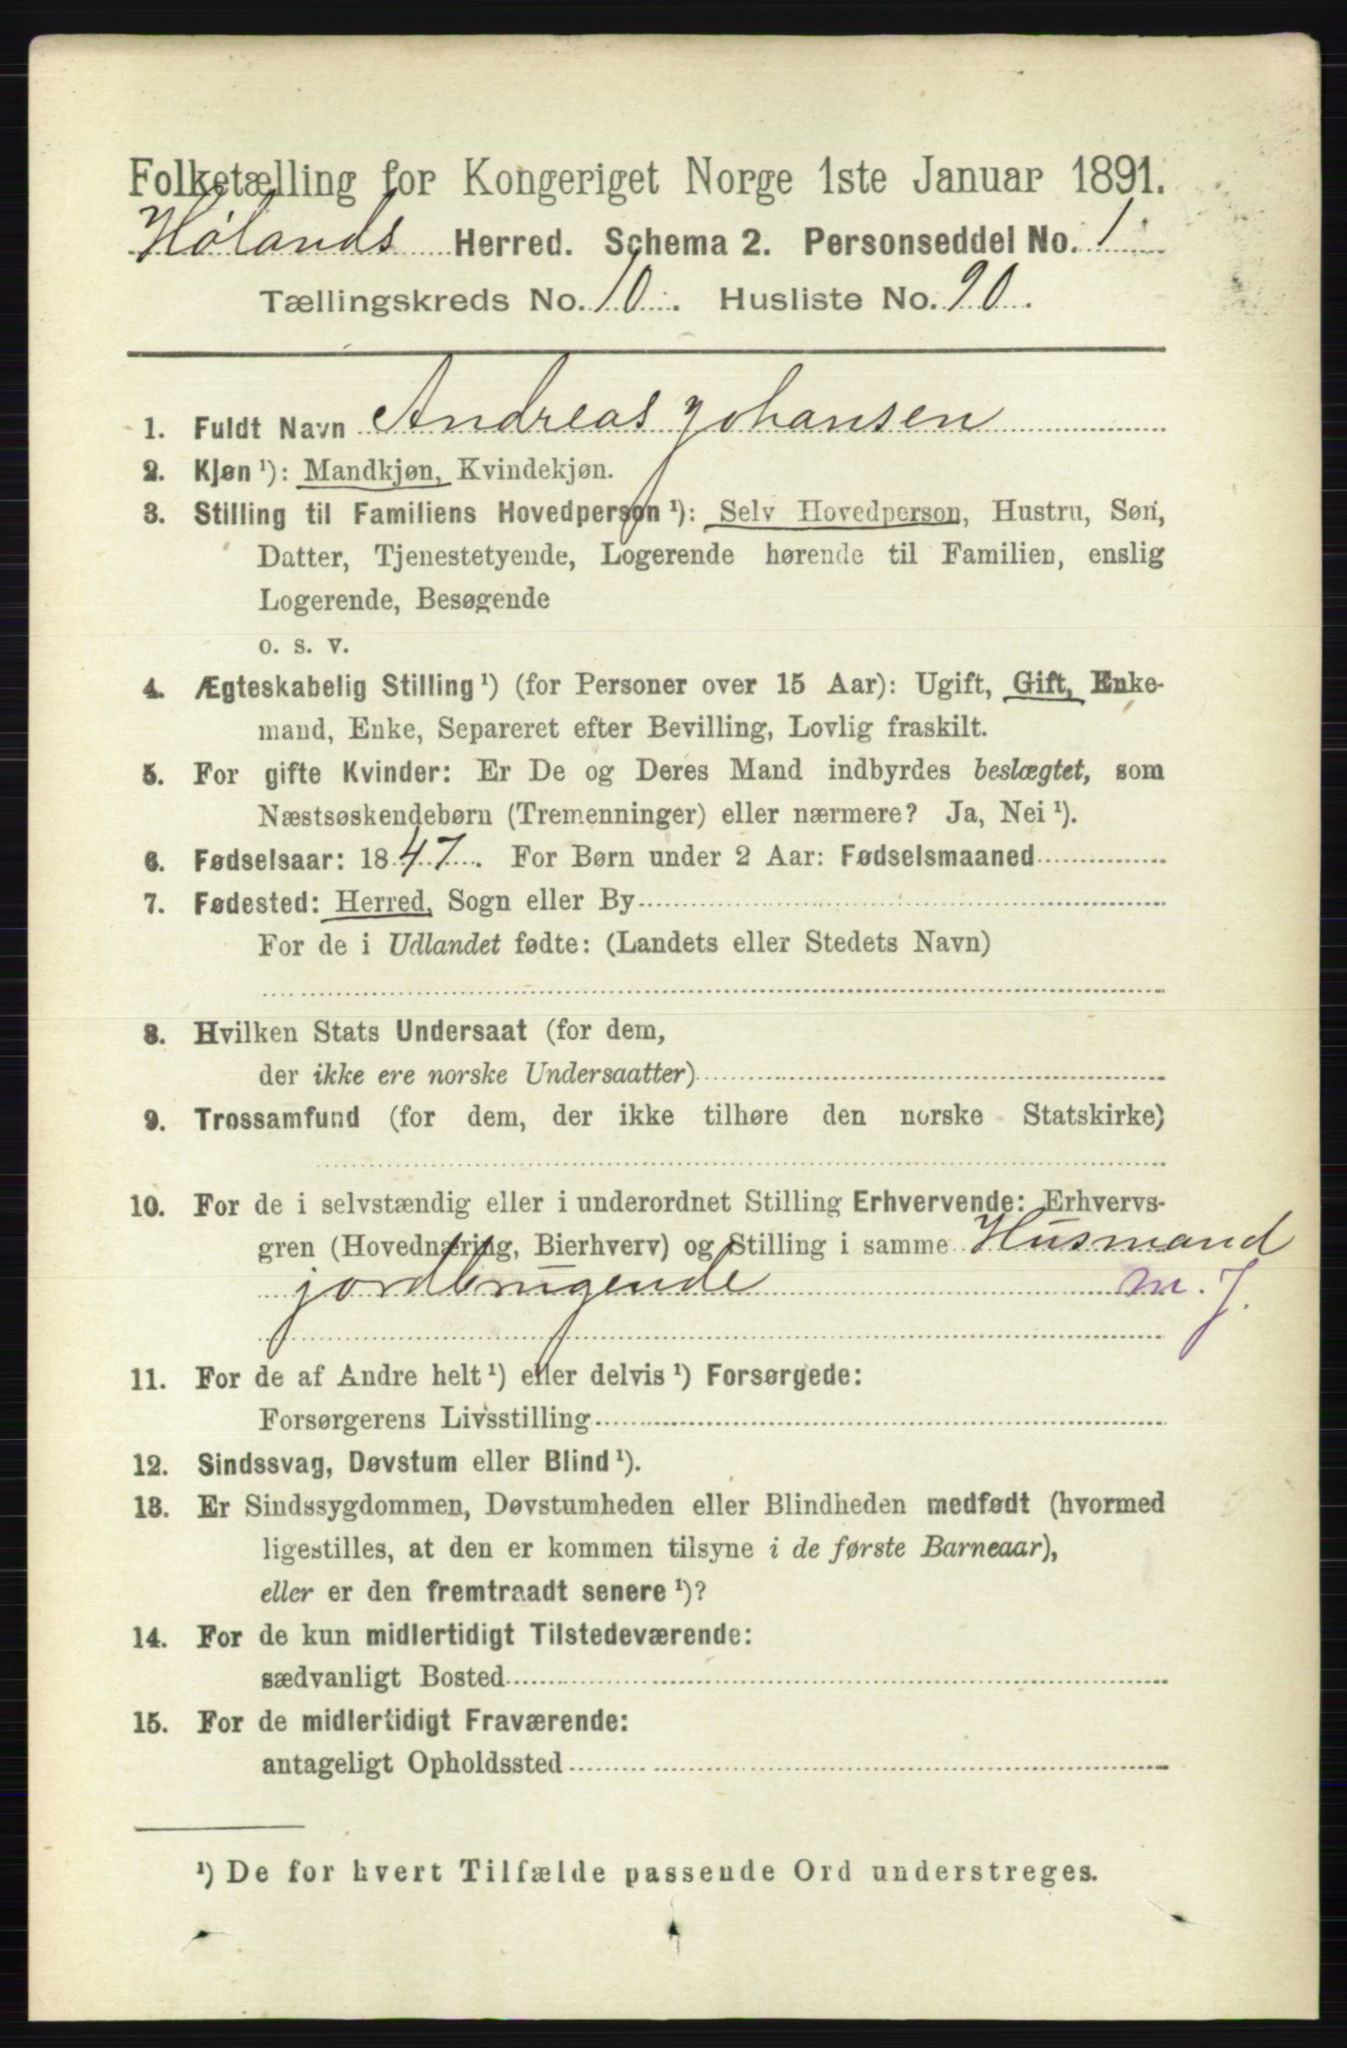 Folketælling for Kongeriget Norge 1ste Januar 1891.
Hølands Herred. Schema 2. Personseddel No. 1
Tællingskreds No. 10. Husliste No. 90.
1. Fuldt Navn Andreas Johansen
2. Kjøn ¹): Mandkjøn, Kvindekjøn.
3. Stilling til Familiens Hovedperson ¹): Selv Hovedperson, Hustru, Søn,
Datter, Tjenestetyende, Logerende hørende til Familien, enslig
Logerende, Besøgende
o. s. v.
4. Ægteskabelig Stilling ¹) (for Personer over 15 Aar): Ugift, Gift, Enke-
mand, Enke, Separeret efter Bevilling, Lovlig fraskilt.
5. For gifte Kvinder: Er De og Deres Mand indbyrdes beslægtet, som
Næstsøskendebørn (Tremenninger) eller nærmere? Ja, Nei ¹).
6. Fødselsaar: 1847. For Børn under 2 Aar: Fødselsmaaned
7. Fødested: Herred, Sogn eller By
For de i Udlandet fødte: (Landets eller Stedets Navn)
8. Hvilken Stats Undersaat (for dem,
der ikke ere norske Undersaatter)
9. Trossamfund (for dem, der ikke tilhøre den norske Statskirke)
10. For de i selvstændig eller i underordnet Stilling Erhvervende: Erhvervs-
gren (Hovednæring, Bierhverv) og Stilling i samme Husmand
jordbrugende m. J.
11. For de af Andre helt ¹) eller delvis ¹) Forsørgede:
Forsørgerens Livsstilling
12. Sindssvag, Døvstum eller Blind ¹).
13. Er Sindssygdommen, Døvstumheden eller Blindheden medfødt (hvormed
ligestilles, at den er kommen tilsyne i de første Barneaar),
eller er den fremtraadt senere ¹)?
14. For de kun midlertidigt Tilstedeværende:
sædvanligt Bosted
15. For de midlertidigt Fraværende:
antageligt Opholdssted
¹) De for hvert Tilfælde passende Ord understreges.